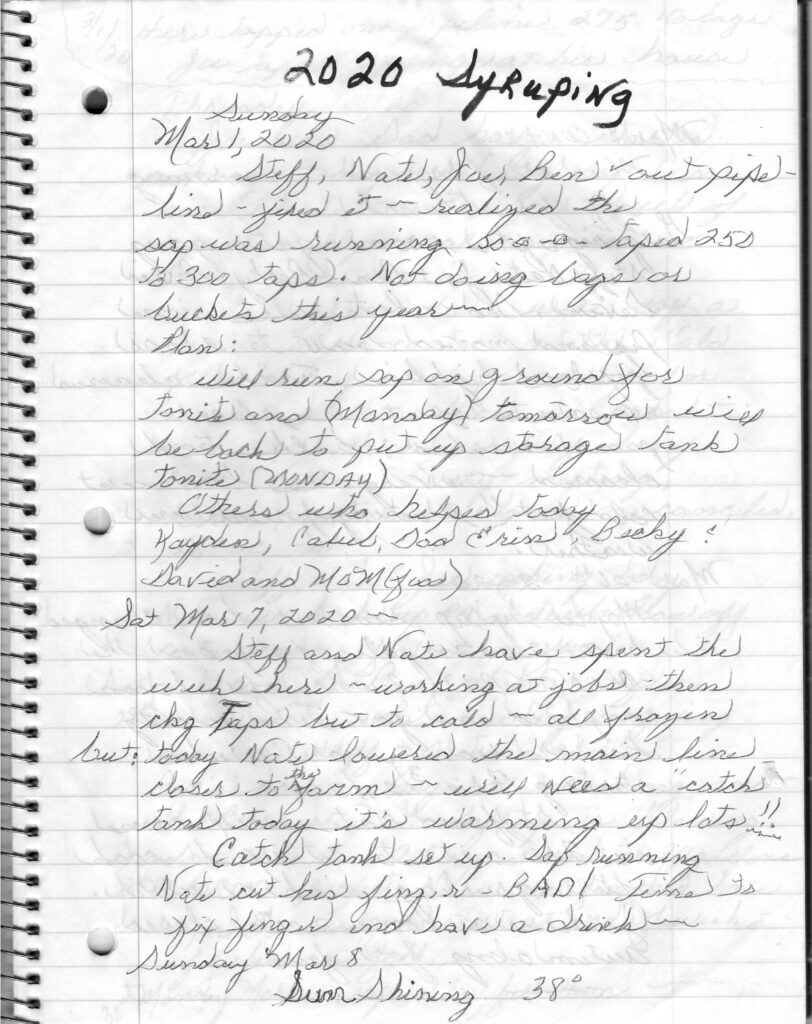 2020 Syruping
Sunday
Mar 1, 2020
Steff, Nate, Joe, Ben out pipe-
line - fixed it ~ realized the
sap was running so-o-o- taped 250
to 300 taps. Not doing bags or
buckets this year ~
Plan:
will run sap on ground for
tonite and (Monday) tomorrow will
be back to put up storage tank
tonite (MONDAY)
Others who helped today
Kayden, Caleb, Dad Erin, Becky &
David and MOM (food)
Sat Mar 7, 2020 ~
Steff and Nate have spent the
week here ~ working at jobs - then
ckg Taps but to cold ~ all frozen
but: today Nate lowered the main line
closer to the farm ~ will need a "catch
tank today it's warming up lots!!
Catch tank set up. Sap running
Nate cut his finger - BAD! Time to
fix finger and have a drink ~
Sunday Mar 8
Sun Shining 38°